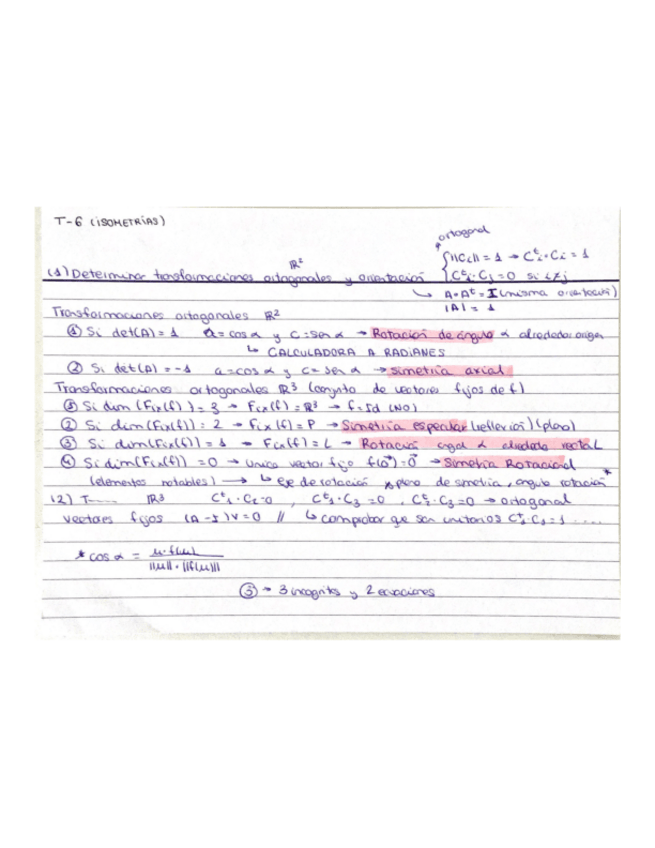 T-6 (ISOMETRÍAS)
ortogonal
ℝ²
(1) Determinar transformaciones ortogonales y orientación { ||Ci|| = 1 → Cᵗi · Ci = 1
Cᵗi · Cj = 0 si i≠j
↳ A·Aᵗ = I (misma orientación)
|A| = 1
Transformaciones ortogonales ℝ²
① Si det(A) = 1 a = cos α y c = sen α → Rotación de ángulo α alrededor origen
↳ CALCULADORA A RADIANES
② Si det(A) = -1 a = cos α y c = sen α → Simetría axial
Transformaciones ortogonales ℝ³ (conjunto de vectores fijos de f)
① Si dim (Fix(f)) = 3 → Fix(f) = ℝ³ → f = Id (NO)
② Si dim (Fix(f)) = 2 → Fix(f) = P → Simetría especular (reflexión) (plano)
③ Si dim(Fix(f)) = 1 → Fix(f) = L → Rotación angul α alrededor recta L
④ Si dim(Fix(f)) = 0 → Único vector fijo f(0⃗) = 0⃗ → Simetría Rotacional
(elementos notables) → ↳ eje de rotación, plano de simetría, ángulo rotación *
(2) T---- ℝ³ Cᵗ1 · C2 = 0, Cᵗ1 · C3 = 0, Cᵗ2 · C3 = 0 → ortogonal
vectores fijos (A - I) v = 0 // ↳ comprobar que son unitarios Cᵗ1 · C1 = 1 ....
* cos α = u · f(u) / ||u|| · ||f(u)||
③ → 3 incógnitas y 2 ecuaciones